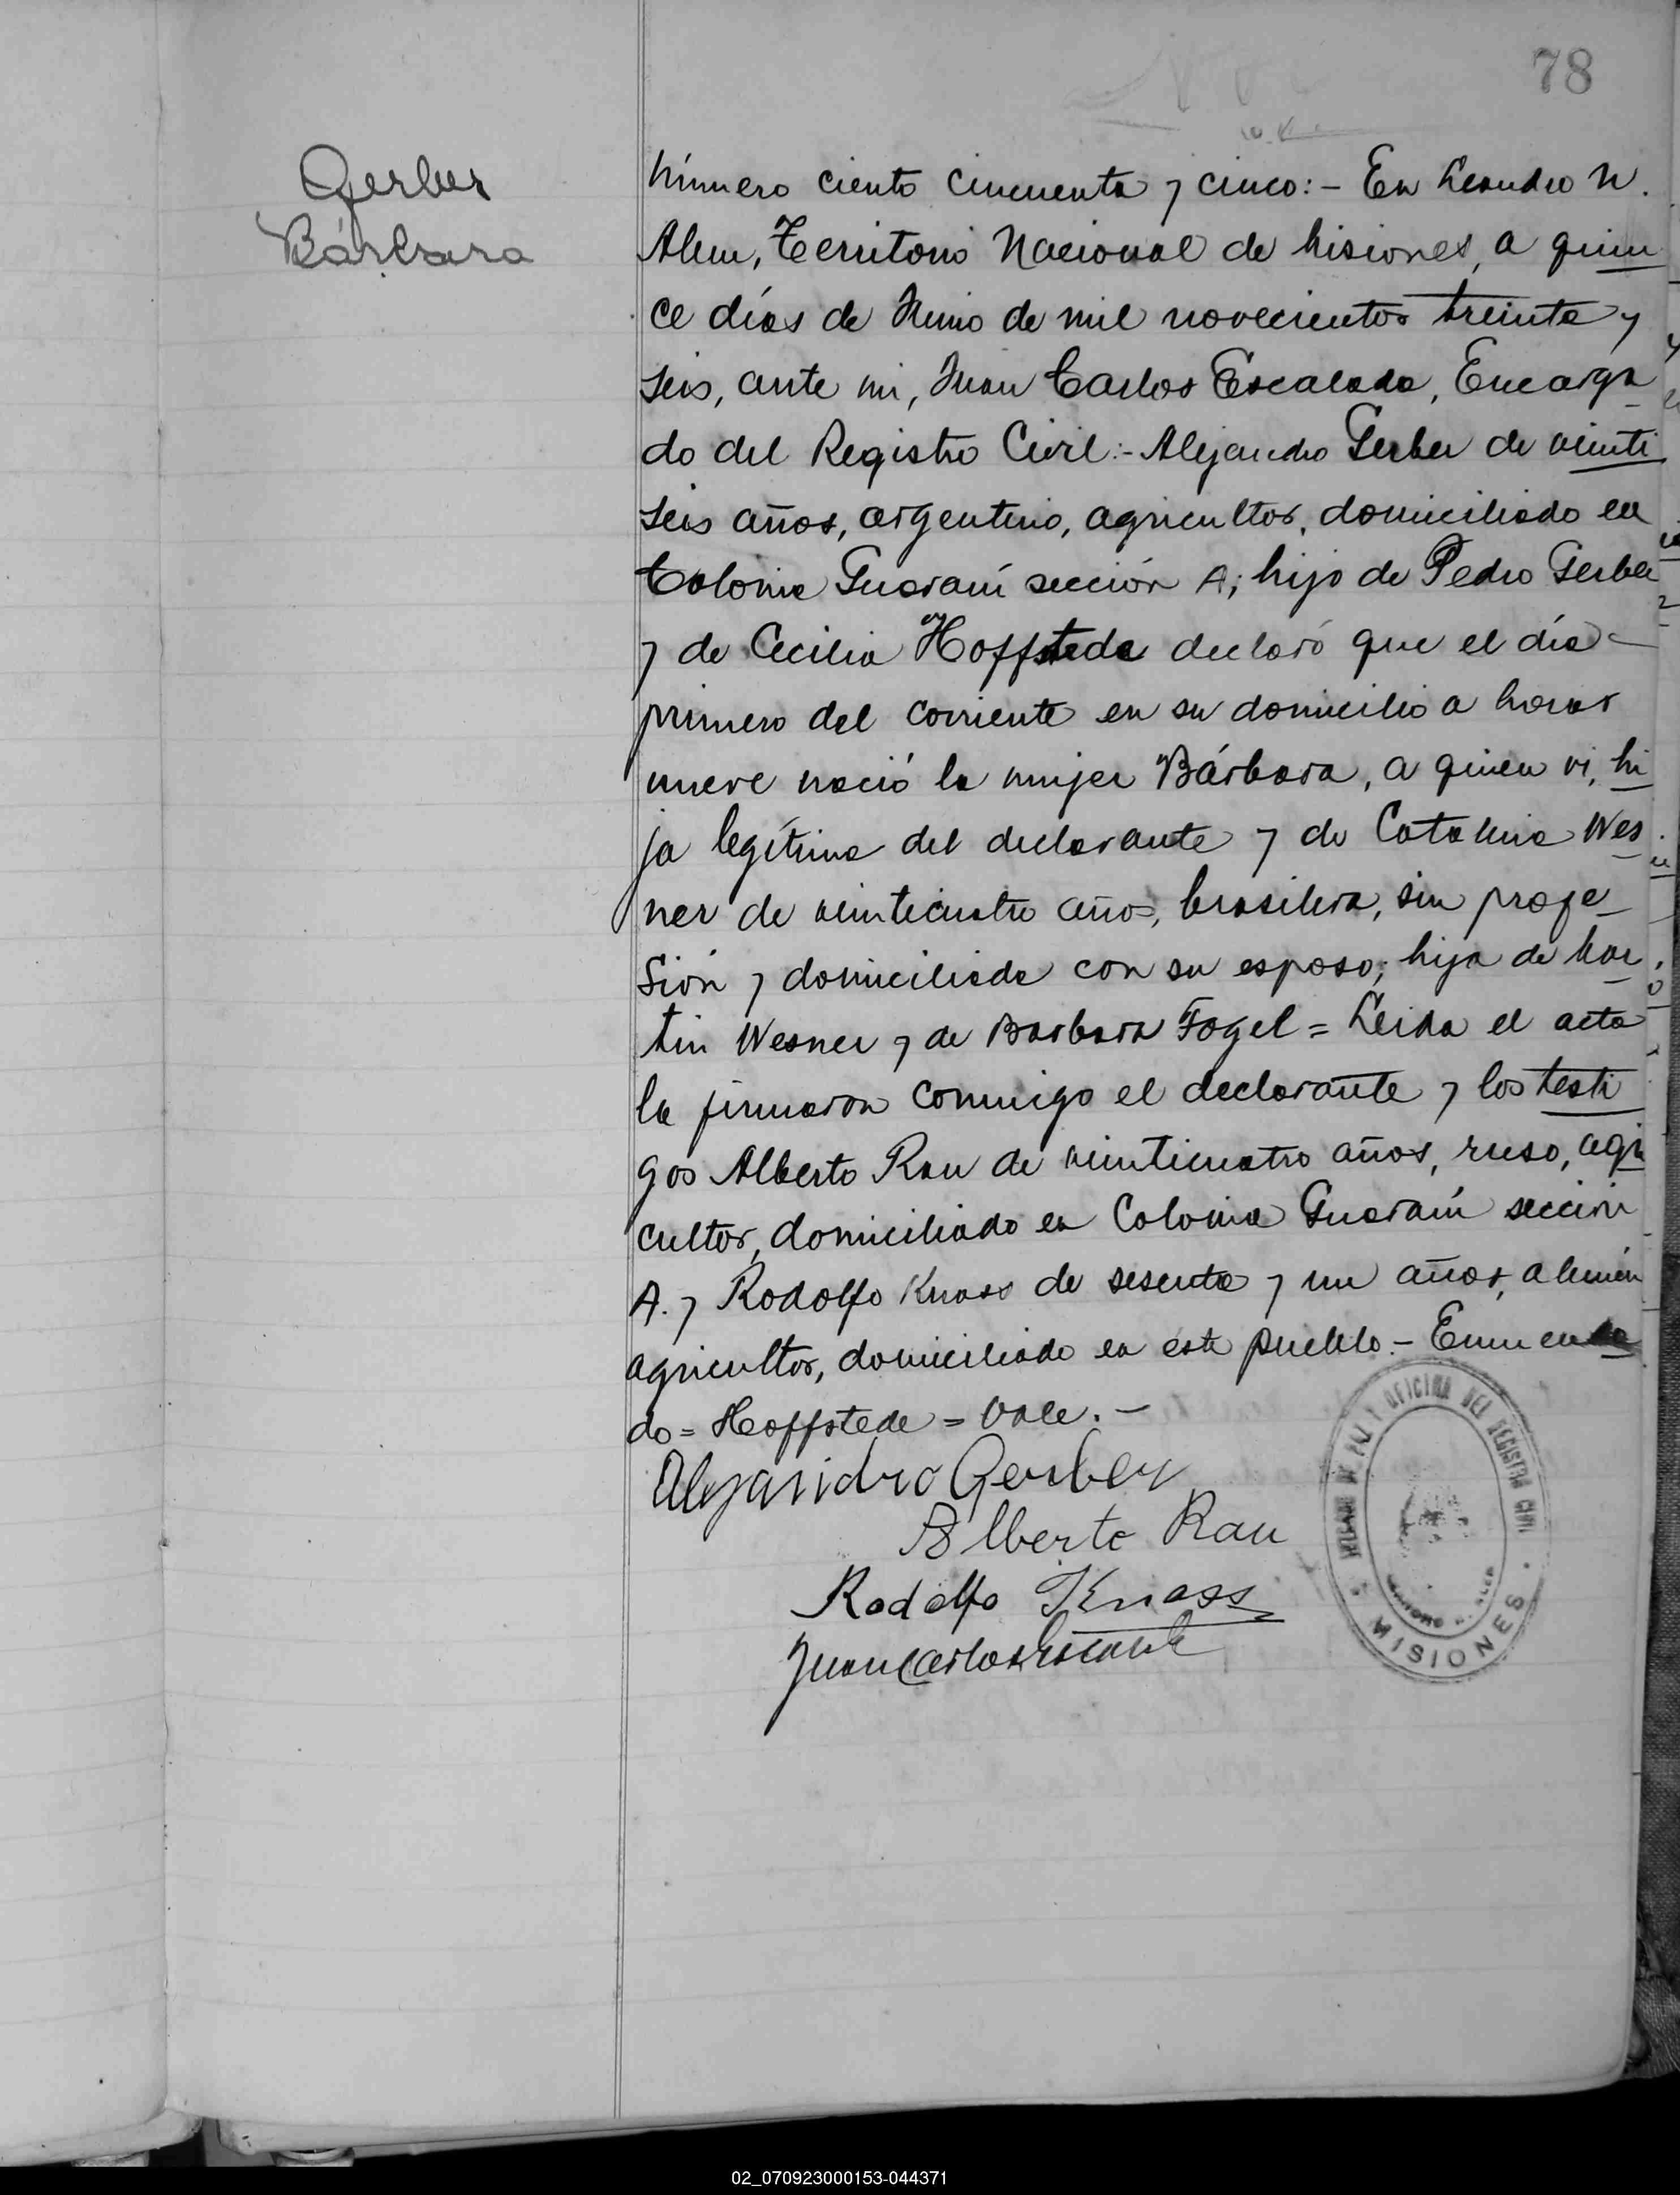 78
Gerber
Bárbara
Número ciento cincuenta y cinco:- En Leandro N.
Alem, Territorio Nacional de Misiones, a quin
ce días de Junio de mil novecientos treinta y
seis, ante mi, Juan Carlos Escalada, Encarga
do del Registro Civil:- Alejandro Gerber de veinti
seis años, argentino, agricultor, domiciliado en
Colonia Guaraní sección A; hijo de Pedro Gerber
y de Cecilia Hoffstede declaró que el día
primero del corriente en su domicilio a horas
nueve nació la mujer Bárbara, a quien vi, hi
ja legítima del declarante y de Catalina Wes
ner de veinticuatro años, brasilera, sin profe
sión y domiciliada con su esposo; hija de Mar
tin Wesner y de Barbara Fogel = Leida el acta
la firmaron conmigo el declarante y los testi
gos Alberto Rau de veinticuatro años, ruso, agri
cultor, domiciliado en Colonia Guaraní sección
A. y Rodolfo Knass de sesenta y un años, alemán
agricultor, domiciliado en este pueblo.- Enmenda
do = Hoffstede = Vale.-
Alejandro Gerber
Alberto Rau
Rodolfo Knass
Juan Carlos Escalada
JUZGADO DE PAZ Y OFICINA DEL REGISTRO CIVIL
MISIONES
02_070923000153-044371